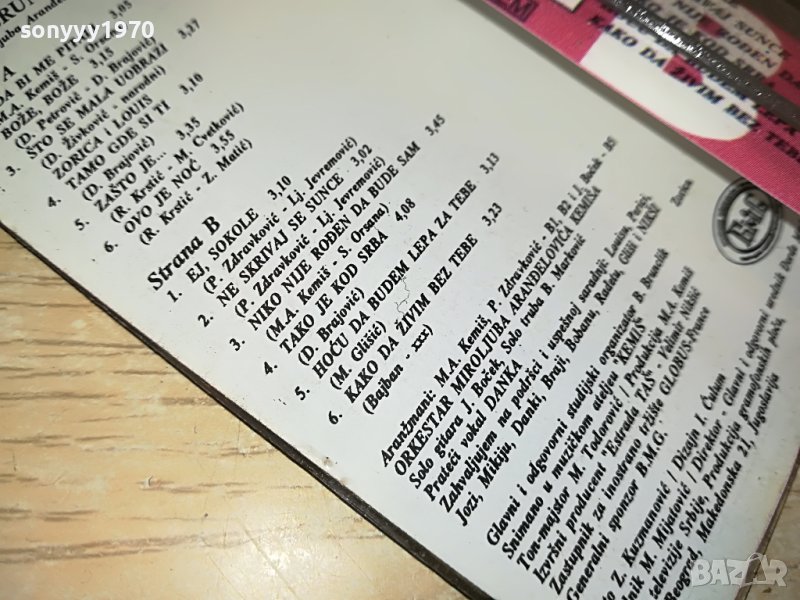 sonyyy1970
3,05
A
DA BI ME PITALI
M.A. Kemiš - S. Orsana
3,37
BOŽE, BOŽE 3,15
(D. Petrović - D. Brajović)
3. ŠTO SE MALA UOBRAZI
(D. Živković - narodni)
ZORICA i LOUIS
4. TAMO GDE SI TI 3,10
(D. Brajović)
5. ZAŠTO JE... 3,35
(R. Krstić - M. Cvetković)
6. OVO JE NOĆ 3,55
(R. Krstić - Z. Matić)
Strana B
1. EJ, SOKOLE 3,10
(P. Zdravković - Lj. Jevremović)
2. NE SKRIVAJ SE SUNCE 3,02
(P. Zdravković - Lj. Jevremović)
3. NIKO NIJE ROĐEN DA BUDE SAM 3,45
(M.A. Kemiš - S. Orsana)
4. TAKO JE KOD SRBA 4,08
(D. Brajović)
5. HOĆU DA BUDEM LEPA ZA TEBE 3,13
(M. Glišić)
6. KAKO DA ŽIVIM BEZ TEBE 3,23
(Bajban - xxx)
Aranžmani: M.A. Kemiš, P. Zdravković - B1, B2 i J. Boček - B5
ORKESTAR MIROLJUBA ARANĐELOVIĆA KEMIŠA
Solo gitara J. Boček, Solo truba B. Marković
Prateći vokal DANKA
Zahvaljujem na podršci i uspešnoj saradnji:
Jozi, Mikiju, Danki, Braji, Bobanu, Radetu, Gliši i NIKŠI
Glavni i odgovorni studijski organizator B.
Snimano u muzičkom ateljeu "KEMIŠ"
Ton-majstor M. Todorović / Produkcija M.A. Kemiš
Izvršni producent "Estrada TAŠ" - Velimir Nikšić
Zastupnik za inostrano tržište GLORUS-France
Generalni sponzor B.M.G.
Z. Kuzmanović / Dizajn I. Ćulum
M. Mijatović / Direktor - Glavni i odgovorni urednik
televizije Srbije, Produkcija gramofonskih ploča,
Beograd, Makedonska 21, Jugoslavija
SUNCE
ROĐEN DA
KAKO DA ŽIVIM BEZ TEBE
BAZAR